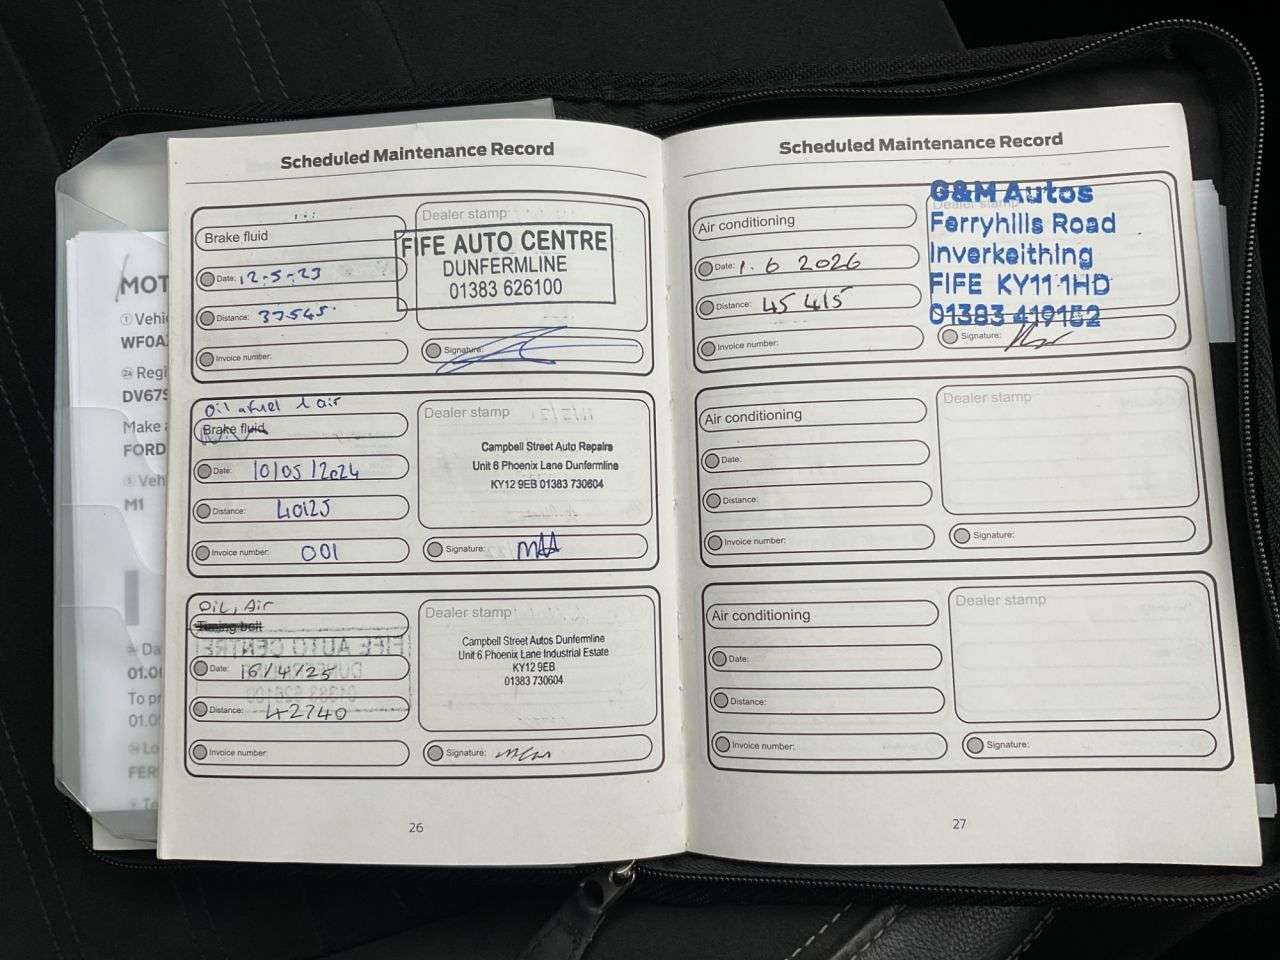 Scheduled Maintenance Record
Brake fluid
Date: 12-5-23
Distance: 37545
Invoice number:
Dealer stamp
FIFE AUTO CENTRE
DUNFERMLINE
01383 626100
Signature:
Oil & fuel & air
Brake fluid
Date: 10/05/2024
Distance: 40125
Invoice number: 001
Dealer stamp
Campbell Street Auto Repairs
Unit 6 Phoenix Lane Dunfermline
KY12 9EB 01383 730604
Signature:
OIL, Air
Timing belt
Date: 16/4/25
Distance: 42740
Invoice number:
Dealer stamp
Campbell Street Autos Dunfermline
Unit 6 Phoenix Lane Industrial Estate
KY12 9EB
01383 730604
Signature:
26
Scheduled Maintenance Record
Air conditioning
Date: 1.6 2026
Distance: 45415
Invoice number:
Dealer stamp
G&M Autos
Ferryhills Road
Inverkeithing
FIFE KY11 1HD
01383 419152
Signature:
Air conditioning
Date:
Distance:
Invoice number:
Dealer stamp
Signature:
Air conditioning
Date:
Distance:
Invoice number:
Dealer stamp
Signature:
27
MOT
WF0A
DV67S
Make
FORD
M1
01.0
To
01.0
FER